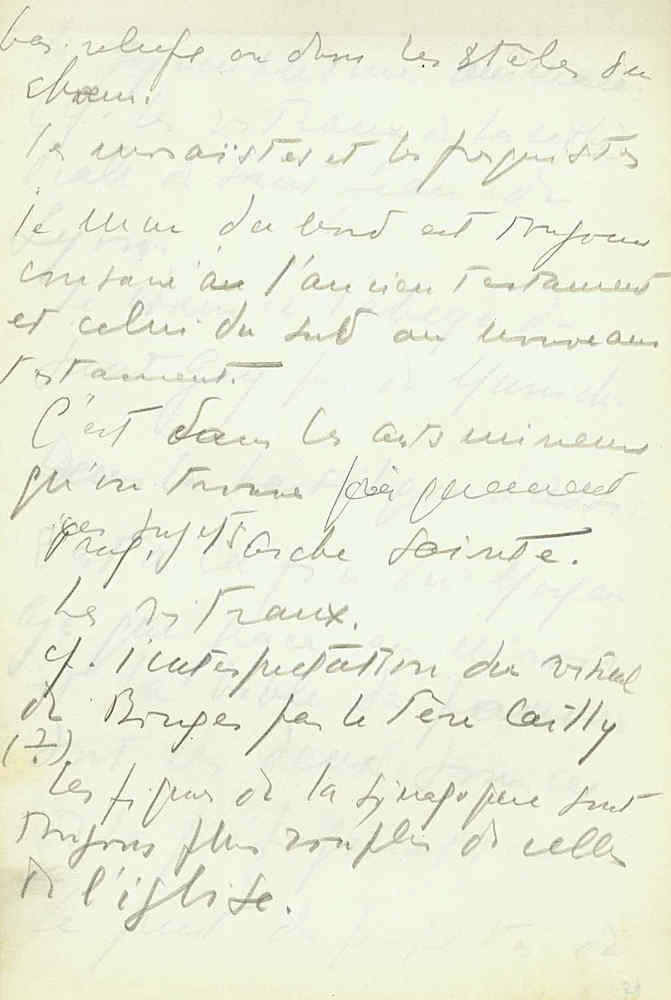 bas-reliefs ou dans les stalles du
chœur.
les mosaïstes et les fresquistes
le mur du nord est toujours
consacré à l'ancien testament
et celui du sud au nouveau
testament.
C'est dans les arts mineurs
qu'on trouve fréquemment
ces sujets arche sainte.
Les vitraux.
cf. l'interprétation du vitrail
de Bourges par le Père Cailly
(?)
Les figures de la synagogue sont
toujours plus souples de celles
de l'église.